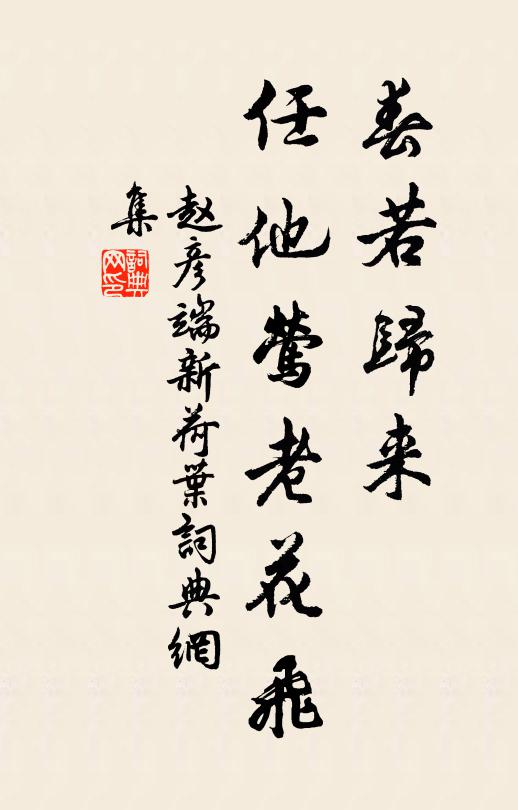 春若歸来
任他鶯老花飛
赵彦端新荷葉詞典網
集
詞典网印